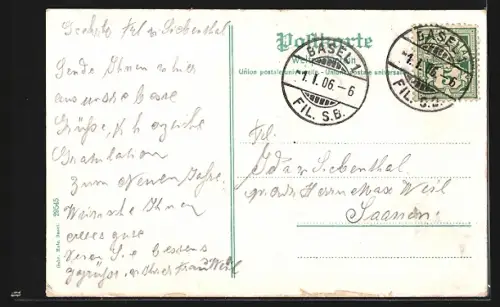 Geehrte Frl. v Siebenthal
Sende Ihnen v hier
aus unsre beste
Grüße, & herzliche
Gratulation
zum Neuen Jahre.
Wünsche Ihnen
alles gute
Seien Sie bestens
gegrüsst v Frau Weil
Postkarte
Union postale universelle
BASEL 1
1.I.06.-6
FIL. S.B.
BASEL 1
1.I.06.-6
FIL. S.B.
Frl.
Ida v Siebenthal
Herrn Max Weil
Saanen
29545